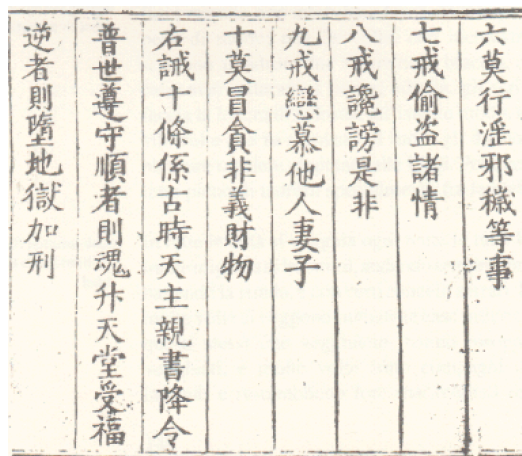 六莫行淫邪穢等事
七戒偷盗諸情
八戒讒謗是非
九戒戀慕他人妻子
十莫冒貪非義財物
右誡十條係古時天主親書降令
普世遵守順者則魂升天堂受福
逆者則墮地獄加刑